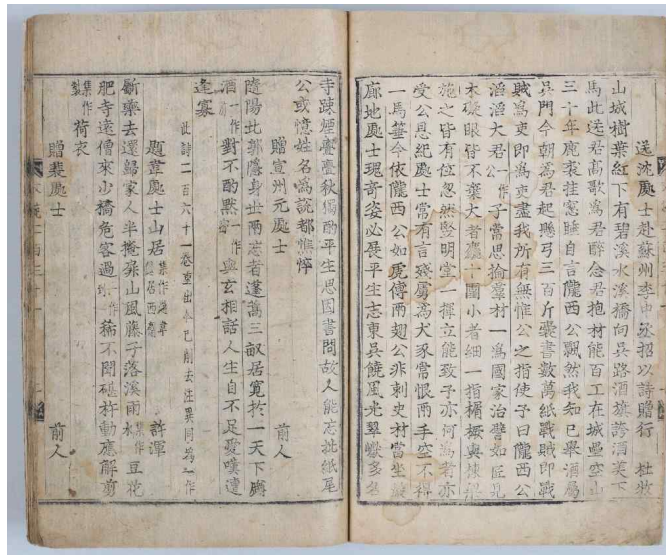 送沈處士赴蘇州李中丞招以詩贈行 杜牧
山城樹葉紅下有碧溪水溪橋向吳路酒旗誇酒美下
馬此送君高歌爲君醉念君抱材能百工在城壘空山
三十年鹿裘挂窻睡自言隴西公飄然我知已舉酒屬
吳門今朝爲君起懸弓三百斤囊書數萬紙戰賊即戰
賊爲吏即爲吏盡我所有無惟公之指使子曰隴西公
滔滔大君公一作子常思掄羣材一爲國家治譬如匠見
木礙眼皆不棄大者麤十圍小者細一指楣橛與棟梁
施之皆有位忽然竪明堂一揮立能致予亦何爲者亦
受公恩紀處士常有言殘虜爲犬豕常恨兩手空不得
一馬箠今依隴西公如虎傅兩翅公非刺史材當坐巖
廊地處士瑰奇姿必展平生志東吳饒風光翠巘多名
寺疎煙亹亹秋獨酌平生思因書問故人能忘批紙尾
公或憶姓名爲說都憔悴
贈宣州元處士 前人
陵陽北郭隱身世兩忘者蓬蒿三畝居寬於一天下樽
酒一作對不酌默一作與玄相話人生自不足愛嘆遭
逢寡
此詩二百六十一卷重出今已削去注異同爲一作
題韋處士山居 許渾
斸藥去還歸家人半掩扉山風藤子落溪雨集作水豆花
肥寺遠僧來少橋危客過一作到稀不聞砧杵動應解剪
集作製荷衣
贈裴處士 前人